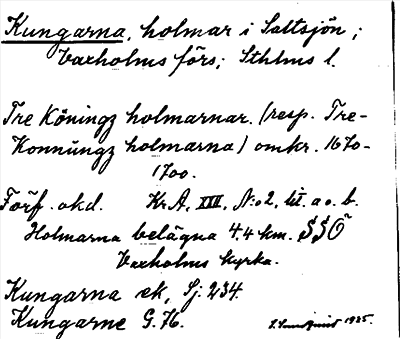 Kungarna, holmar i Saltsjön;
Vaxholms förs; Sthlms l.
Tre Köningz holmarnar. (resp. Tre-
Konnüngz holmarna) omkr. 1670-
1700.
Förf. okd. Kr.A, XIII, N:o 2, lit. a o. b.
Holmarna belägna 4,4 km. SSO
Vaxholms kyrka.
Kungarna ek, Sj. 234.
Kungarne G. 76.
1925.